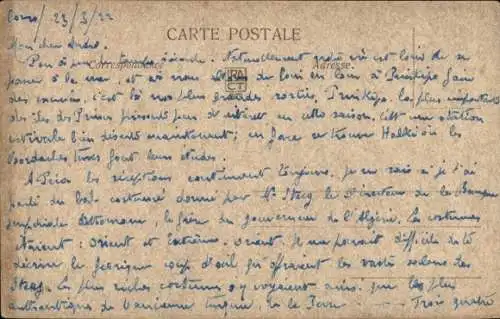 23/3/22
CARTE POSTALE
Mon cher André.
Correspondance
Adresse.
Naturellement notre vie est loin de se
passer à la mer et si nous de loin en loin à Prinkipo faire
des courses, c'est là nos plus grandes sorties. Prinkipo, la plus importante
des îles des Princes présente peu d'intérêt en cette saison. C'est une station
estivale bien déserte maintenant; en face se trouve Halki où les
turcs font leurs études.
A Péra les réceptions continuent toujours, je ne sais si je t'ai
parlé du bal costumé donné par Mr Steeg le Directeur de la Banque
Impériale Ottomane, le frère du gouverneur de l'Algérie. Les costumes
étaient: Orient et Extrême-Orient. Il me paraît difficile de te
décrire le féerique coup d'œil qu'offraient les vastes salons des
Steeg. Les plus riches costumes s'y voyaient ainsi que les plus
authentiques de l'ancienne Turquie, ou la Trois quarts